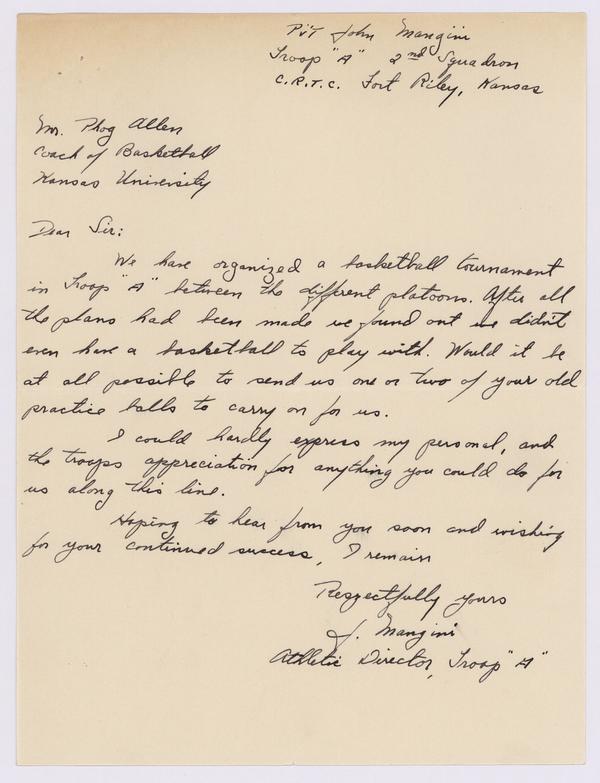 Pvt John Mangini
Troop "A" 2nd Squadron
C.R.T.C. Fort Riley, Kansas
Mr. Phog Allen
Coach of Basketball
Kansas University
Dear Sir:
We have organized a basketball tournament
in Troop "A" between the different platoons. After all
the plans had been made we found out we didn't
even have a basketball to play with. Would it be
at all possible to send us one or two of your old
practice balls to carry on for us.
I could hardly express my personal, and
the troops appreciation for anything you could do for
us along this line.
Hoping to hear from you soon and wishing
for your continued success, I remain
Respectfully yours
J. Mangini
Athletic Director, Troop "A"